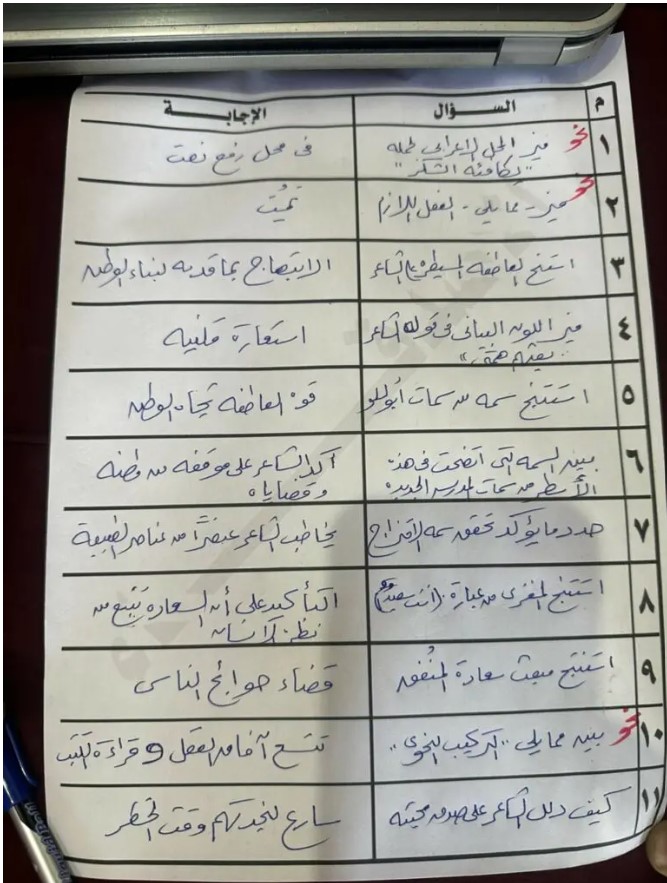 م السؤال الإجابة
١ نحو ميز المحل الإعرابي لجملة في محل رفع نعت
"يكافئه الشكر"
٢ نحو ميز مما يلي - الفعل اللازم تميت
٣ استنتج العاطفة المسيطرة على الشاعر الابتهاج بما قدمه لبناء الوطن
٤ ميز اللون البياني في قول الشاعر استعارة مكنية
همة"
٥ استنتج سمة من سمات أبوللو قوة العاطفة تجاه الوطن
٦ بين السمة التي اتضحت في هذه أكد الشاعر على موقفه من وطنه
الأسطر من سمات المدرسة الجديدة وقضاياه
٧ حدد ما يؤكد تحقق سمة الامتزاج يخاطب الشاعر عنصرًا من عناصر الطبيعة
٨ استنتج المغزى من عبارة (أنت سعيد) التأكيد على أن السعادة تنبع من
نظرة الإنسان
٩ استنتج مبعث سعادة المنفق قضاء حوائج الناس
١٠ نحو بين مما يلي "التركيب النحوي" تتسع آفاق العقل وقراءة الكتب
١١ كيف دلل الشاعر على صدق محبته سارع لنجدتهم وقت الخطر